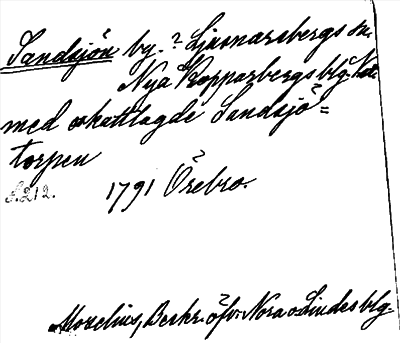 Sandsjön by.? Ljusnarsbergs sn.
Nya Kopparbergs blg
med oskattlagde Sandsjö=
torpen
S. 212. 1791 Örebro.
Morelius, Beskr. öfv. Nora o Lindes blg.